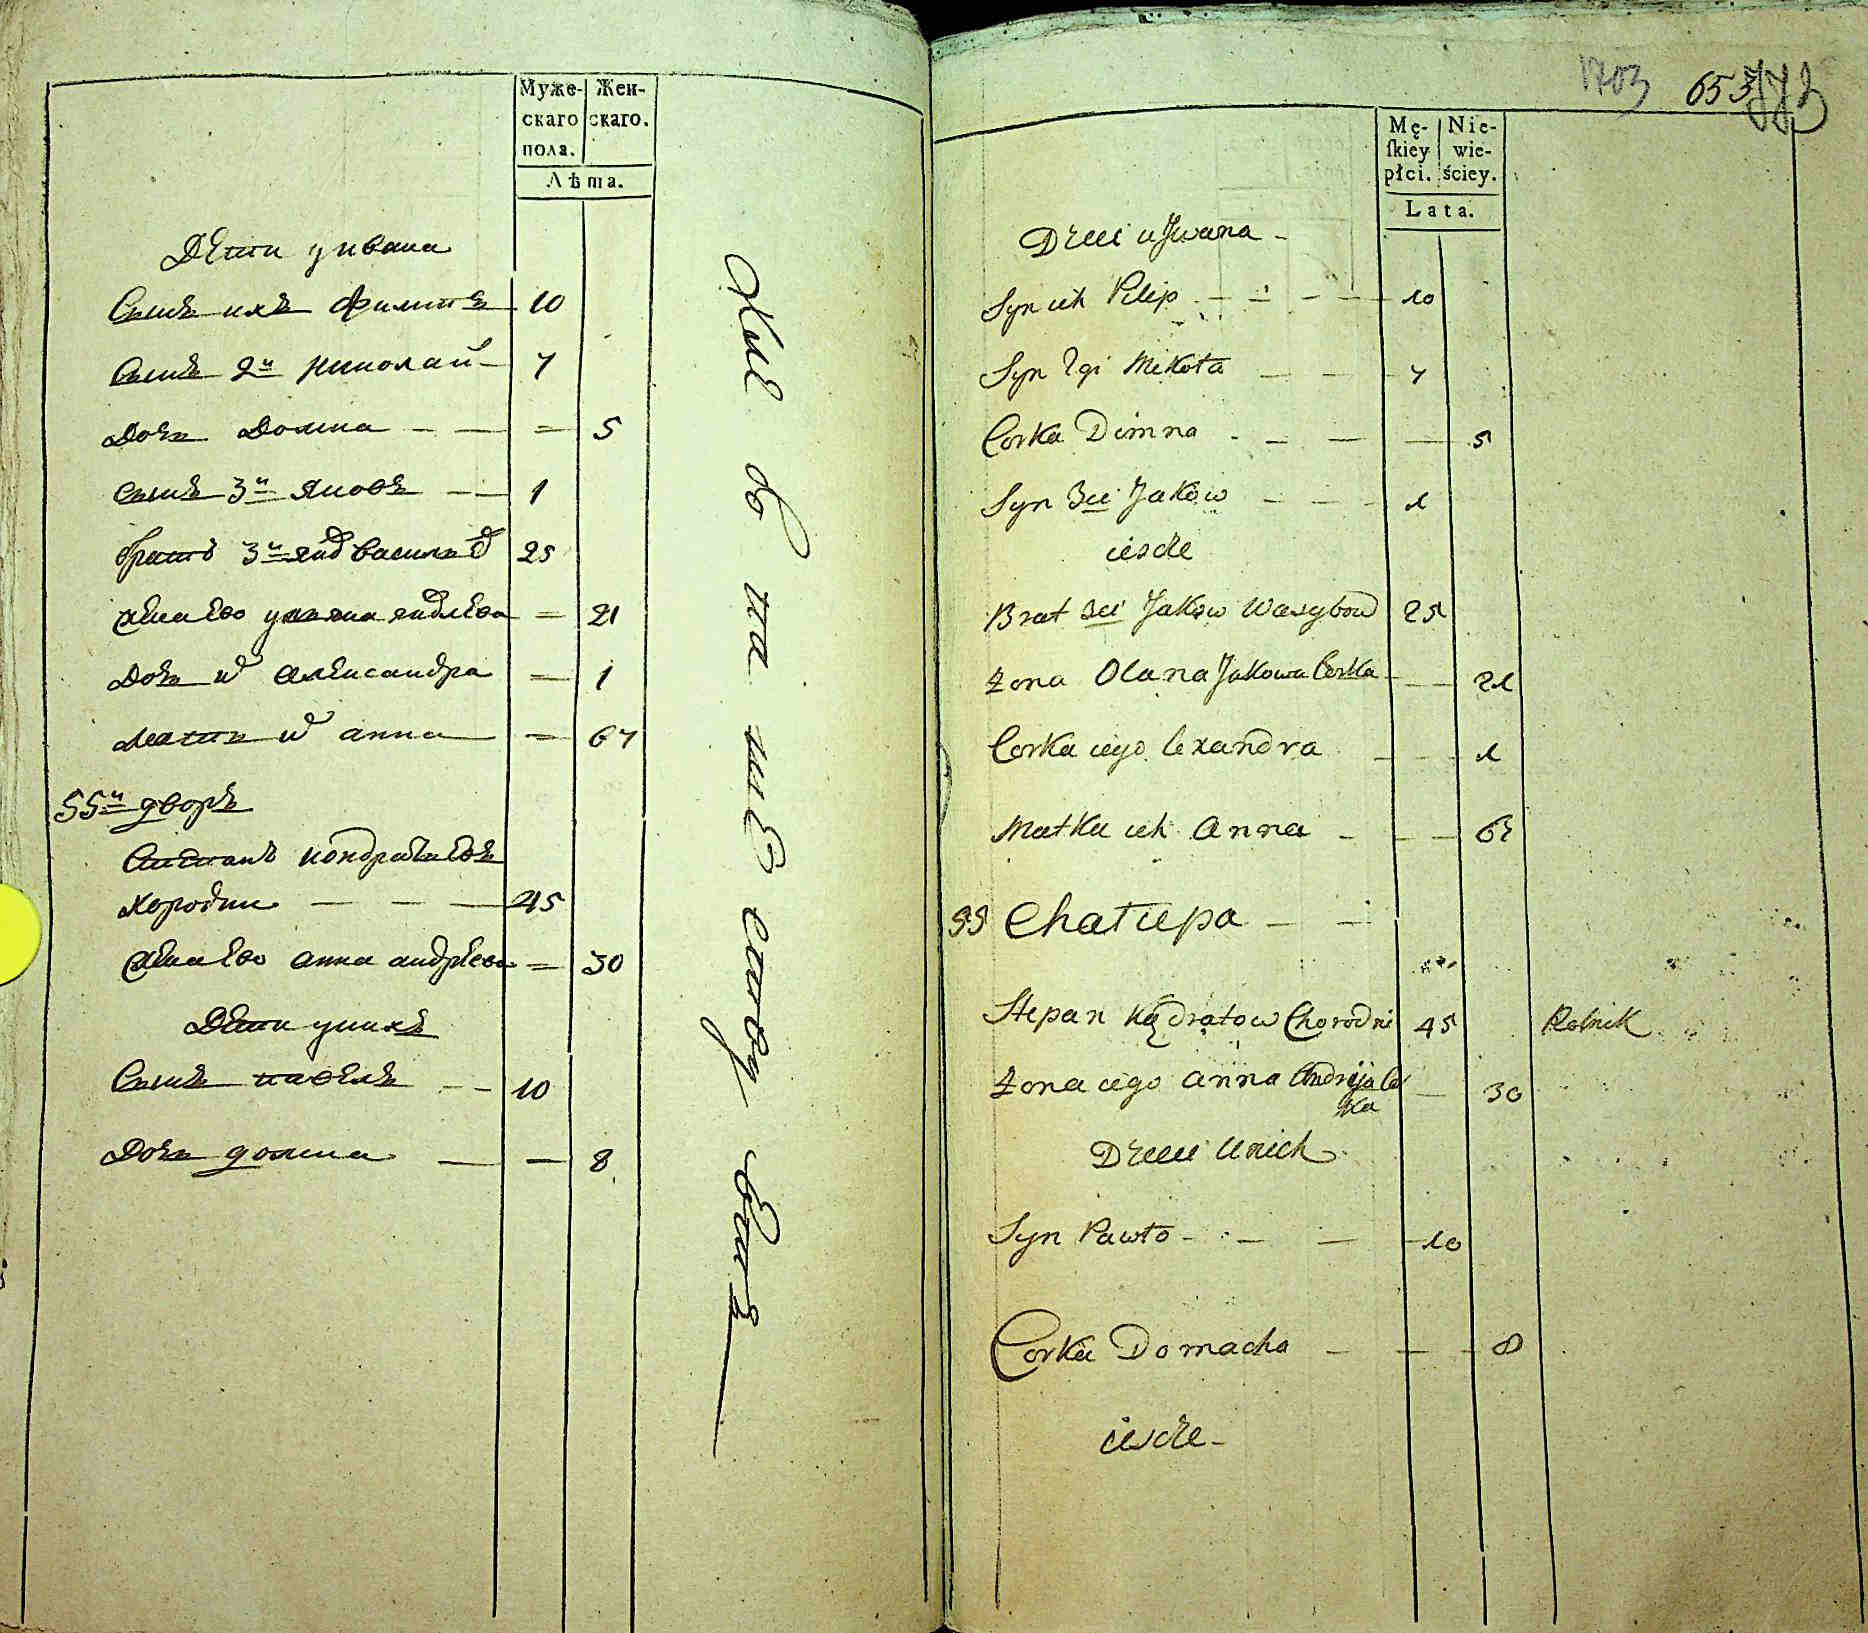 Муже-
скаго
пола.
Жен-
скаго.
Лѣта.
Дети у ивана
Сынъ ихъ Филипъ 10
Сынъ 2й николай 7
Дочь Домна 5
Сынъ 3й Яковъ 1
братъ 3й 25
жена Ево 21
Дочь Александра 1
мать анна 67
55й дворъ
Степанъ кондратьевъ
Хородни 45
жена Ево анна андреева 30
Дети у нихъ
Сынъ павелъ 10
Дочь домна 8
1703 653
Mę-
ſkiey
płci.
Nie-
wie-
ściey.
Lata.
Dzieci u Jwana
Syn ich Pilip 10
Syn 2gi Mikoła 7
Corka Dimna 5
Syn 3ci Jakow 1
ieszcze
Brat 3ci Jakow Wasylow 25
żona Olana Jakowa Corka 21
Corka iego lexandra 1
Matka ich Anna 67
55 Chałupa
Stepan Kądratow Chorodni 45 Rolnik
żona iego anna Andreja Cor
ka 30
Dzieci u nich
Syn Pawło 10
Corka Domacha 8
ieszcze